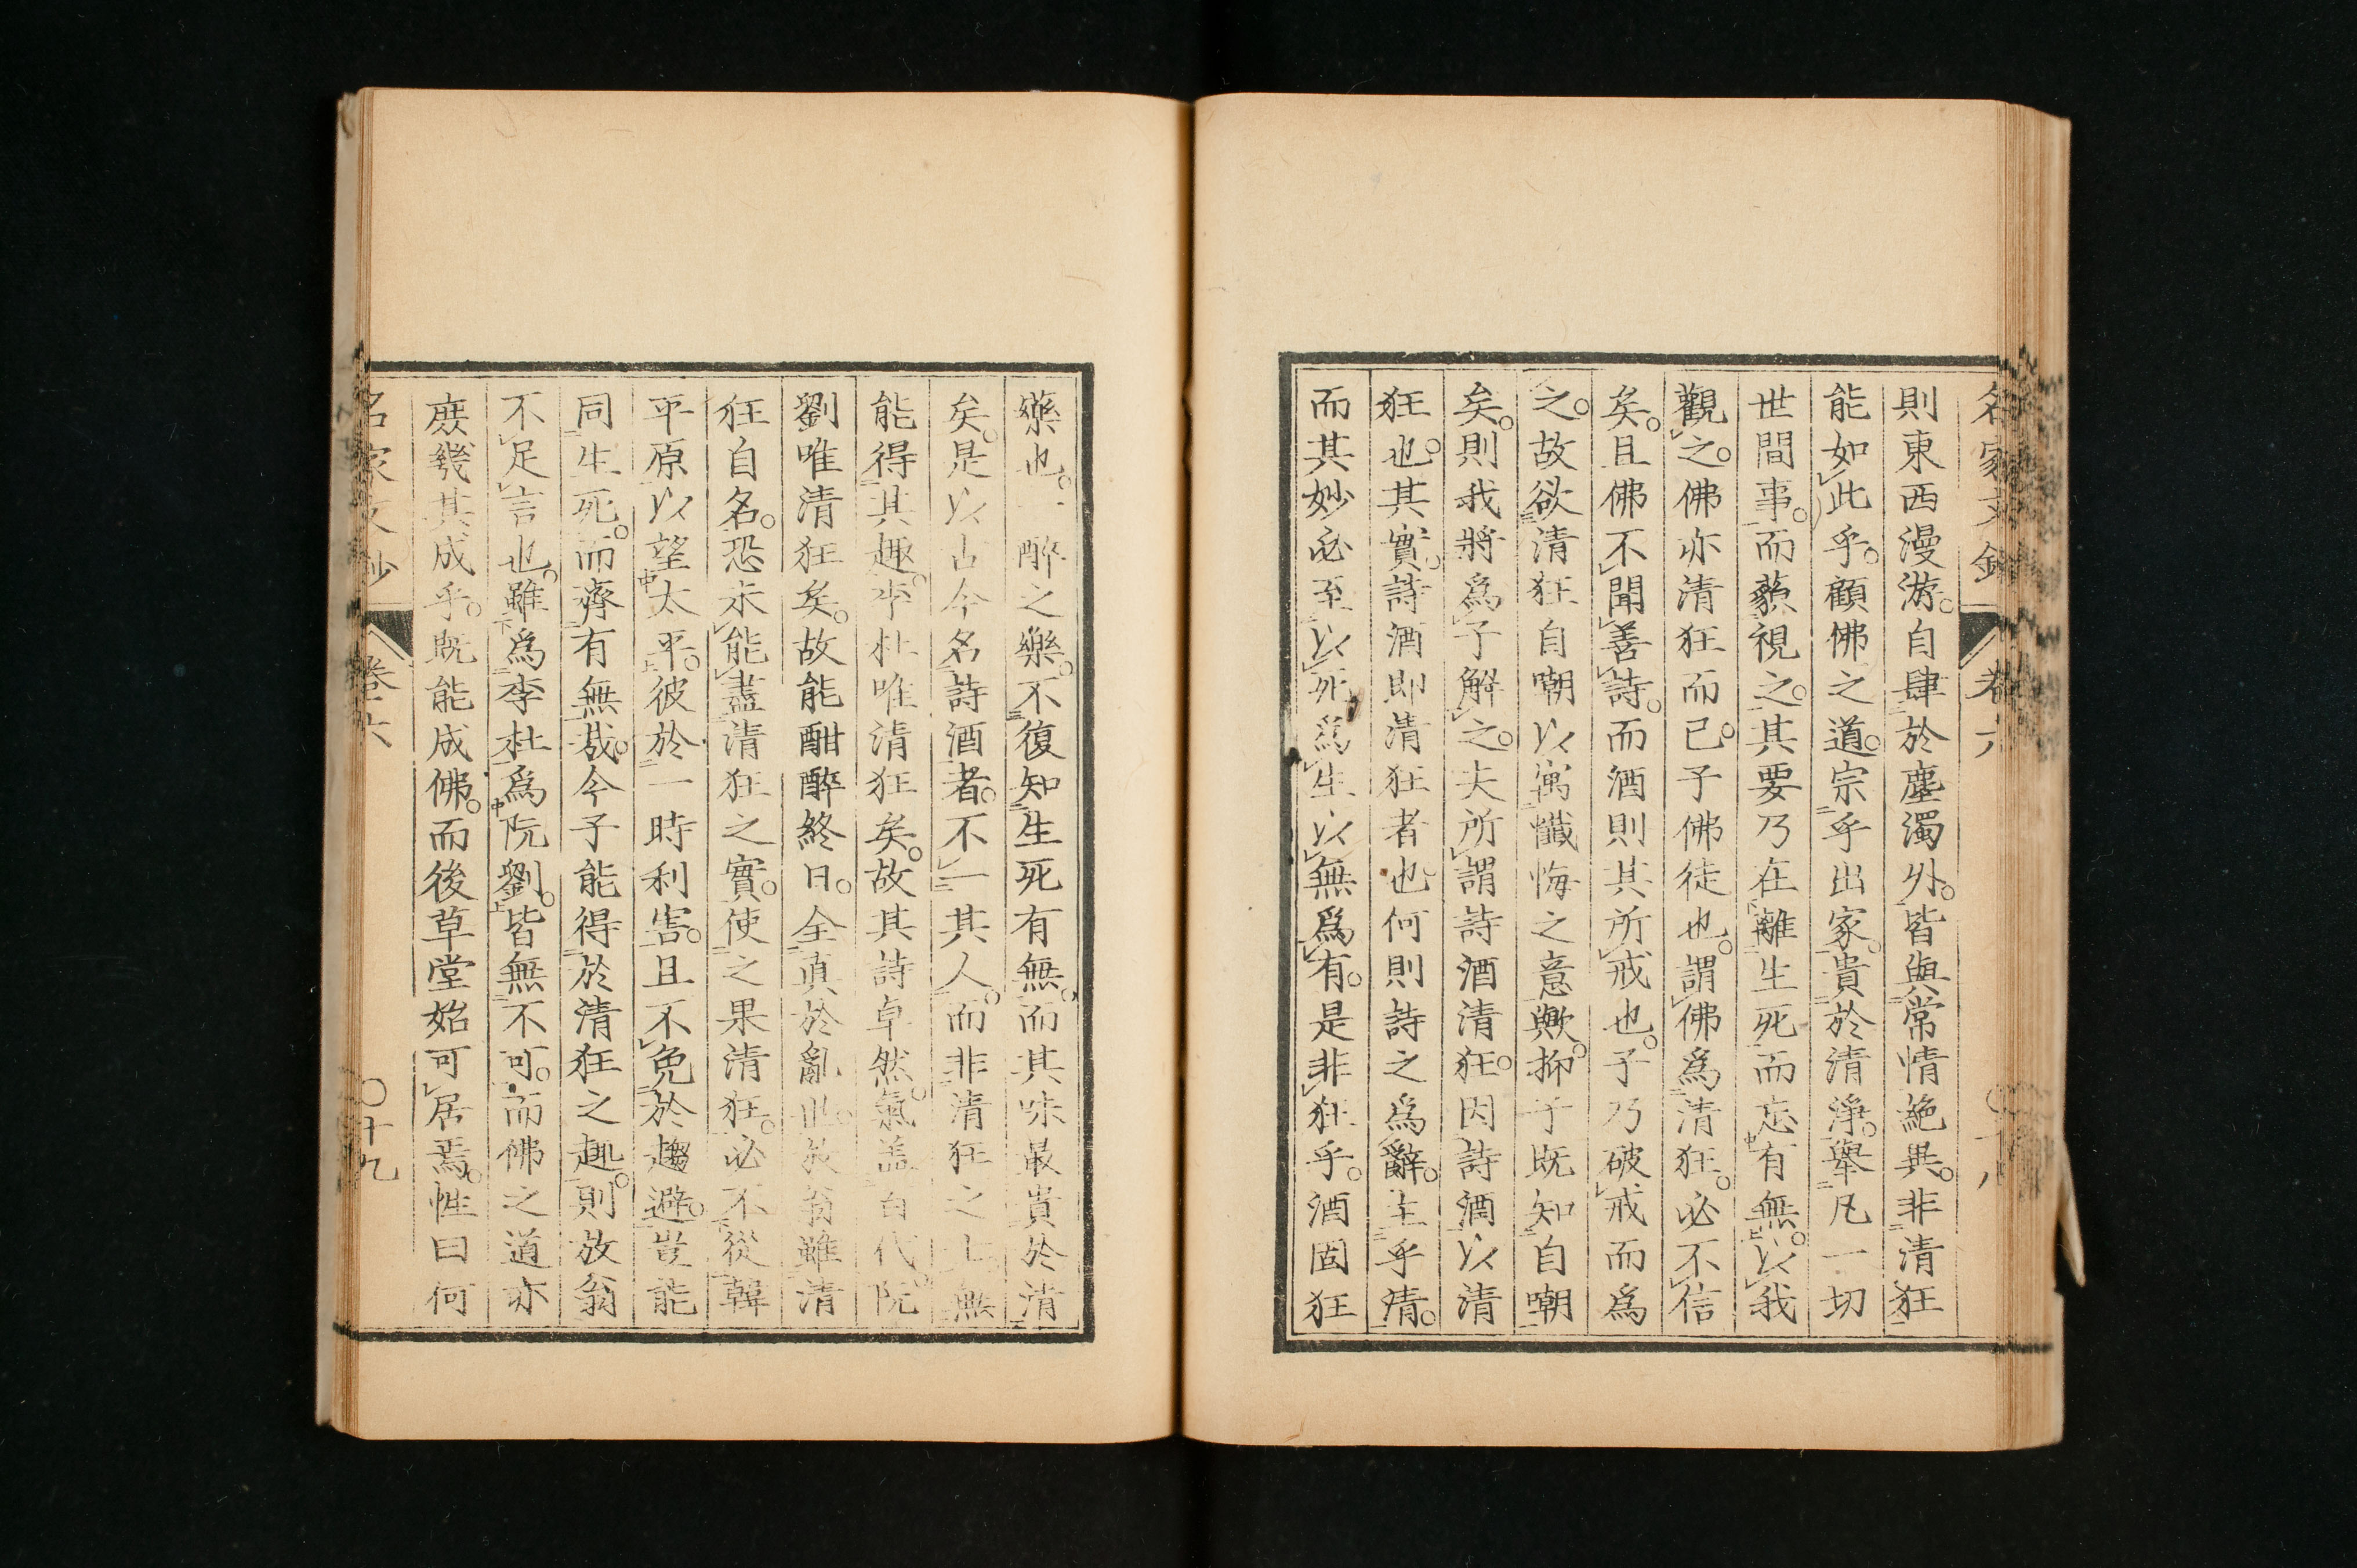 名家文鈔 卷六 〇十八
則東西漫游。自肆於塵濁外。皆與常情絶異。非清狂
能如此乎。顧佛之道。宗乎出家。貴於清淨。舉凡一切
世間事。而藐視之。其要乃在離生死而忘有無。以我
觀之。佛亦清狂而已。子佛徒也。謂佛爲清狂。必不信
矣。且佛不聞善詩。而酒則其所戒也。子乃破戒而爲
之。故欲清狂自嘲以寓懺悔之意歟。抑子既知自嘲
矣。則我將爲子解之。夫所謂詩酒清狂。因詩酒以清
狂也。其實。詩酒即清狂者也。何則詩之爲辭。主乎清。
而其妙必至以死爲生以無爲有。是非狂乎。酒固狂
藥也。一醉之樂。不復知生死有無。而其味最貴於清
矣。是以古今名詩酒者。不一其人。而非清狂之士。無
能得其趣。李杜唯清狂矣。故其詩卓然。氣蓋百代。阮
劉唯清狂矣。故能酣醉終日。全眞於亂世。放翁雖清
狂自名。恐未能盡清狂之實。使之果清狂。必不從韓
平原以望太平。彼於一時利害。且不免於趨避。豈能
同生死。而齊有無哉。今子能得於清狂之趣。則放翁
不足言也。雖爲李杜爲阮劉。皆無不可。而佛之道亦
庶幾其成乎。既能成佛。而後草堂始可居焉。性曰何
名家文鈔 卷六 〇十九